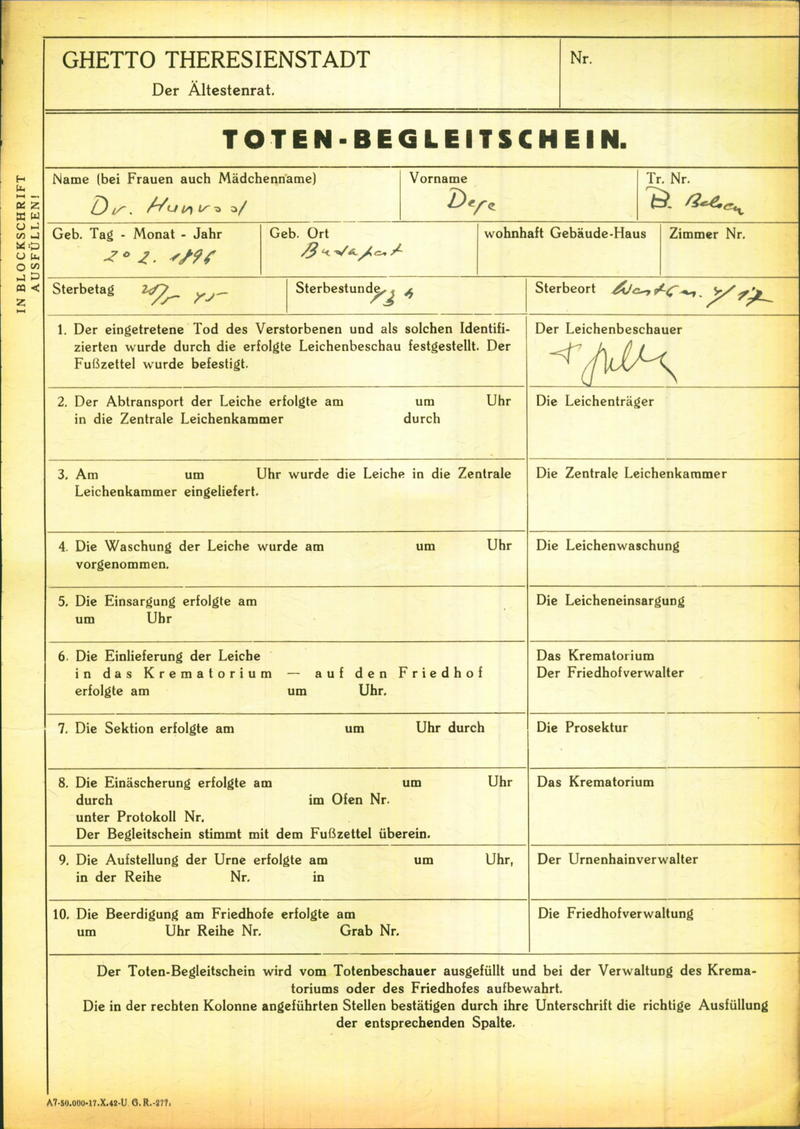 GHETTO THERESIENSTADT
Der Ältestenrat.
Nr.
TOTEN-BEGLEITSCHEIN.
IN BLOCKSCHRIFT
AUSFÜLLEN!
Name (bei Frauen auch Mädchenname)
Dr.
Vorname
Tr. Nr.
B. Belsen
Geb. Tag - Monat - Jahr
Geb. Ort
Budapest
wohnhaft Gebäude-Haus
Zimmer Nr.
Sterbetag
Sterbestunde
Sterbeort
1. Der eingetretene Tod des Verstorbenen und als solchen Identifi-
zierten wurde durch die erfolgte Leichenbeschau festgestellt. Der
Fußzettel wurde befestigt.
Der Leichenbeschauer
2. Der Abtransport der Leiche erfolgte am um Uhr
in die Zentrale Leichenkammer durch
Die Leichenträger
3. Am um Uhr wurde die Leiche in die Zentrale
Leichenkammer eingeliefert.
Die Zentrale Leichenkammer
4. Die Waschung der Leiche wurde am um Uhr
vorgenommen.
Die Leichenwaschung
5. Die Einsargung erfolgte am
um Uhr
Die Leicheneinsargung
6. Die Einlieferung der Leiche
in das Krematorium — auf den Friedhof
erfolgte am um Uhr.
Das Krematorium
Der Friedhofverwalter
7. Die Sektion erfolgte am um Uhr durch
Die Prosektur
8. Die Einäscherung erfolgte am um Uhr
durch im Ofen Nr.
unter Protokoll Nr.
Der Begleitschein stimmt mit dem Fußzettel überein.
Das Krematorium
9. Die Aufstellung der Urne erfolgte am um Uhr,
in der Reihe Nr. in
Der Urnenhainverwalter
10. Die Beerdigung am Friedhofe erfolgte am
um Uhr Reihe Nr. Grab Nr.
Die Friedhofverwaltung
Der Toten-Begleitschein wird vom Totenbeschauer ausgefüllt und bei der Verwaltung des Krema-
toriums oder des Friedhofes aufbewahrt.
Die in der rechten Kolonne angeführten Stellen bestätigen durch ihre Unterschrift die richtige Ausfüllung
der entsprechenden Spalte.
A7-50.000-17.X.42-U G. R.-277.